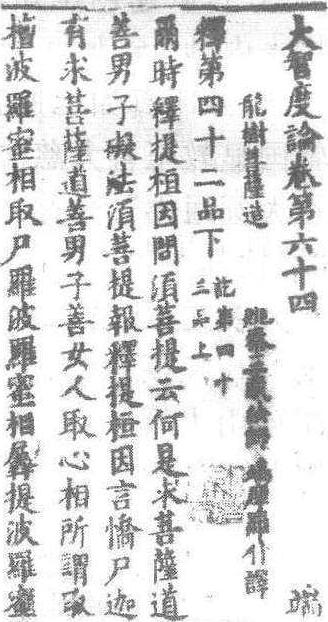 大智度論卷第六十四 端
龍樹菩薩造 三藏 摩羅什譯
釋第四十二品下 訖第四十三品上
爾時釋提桓因問須菩提云何是求菩薩道
善男子礙法須菩提報釋提桓因言憍尸迦
有求菩薩道善男子善女人取心相所謂取
檀波羅蜜相取尸羅波羅蜜相羼提波羅蜜